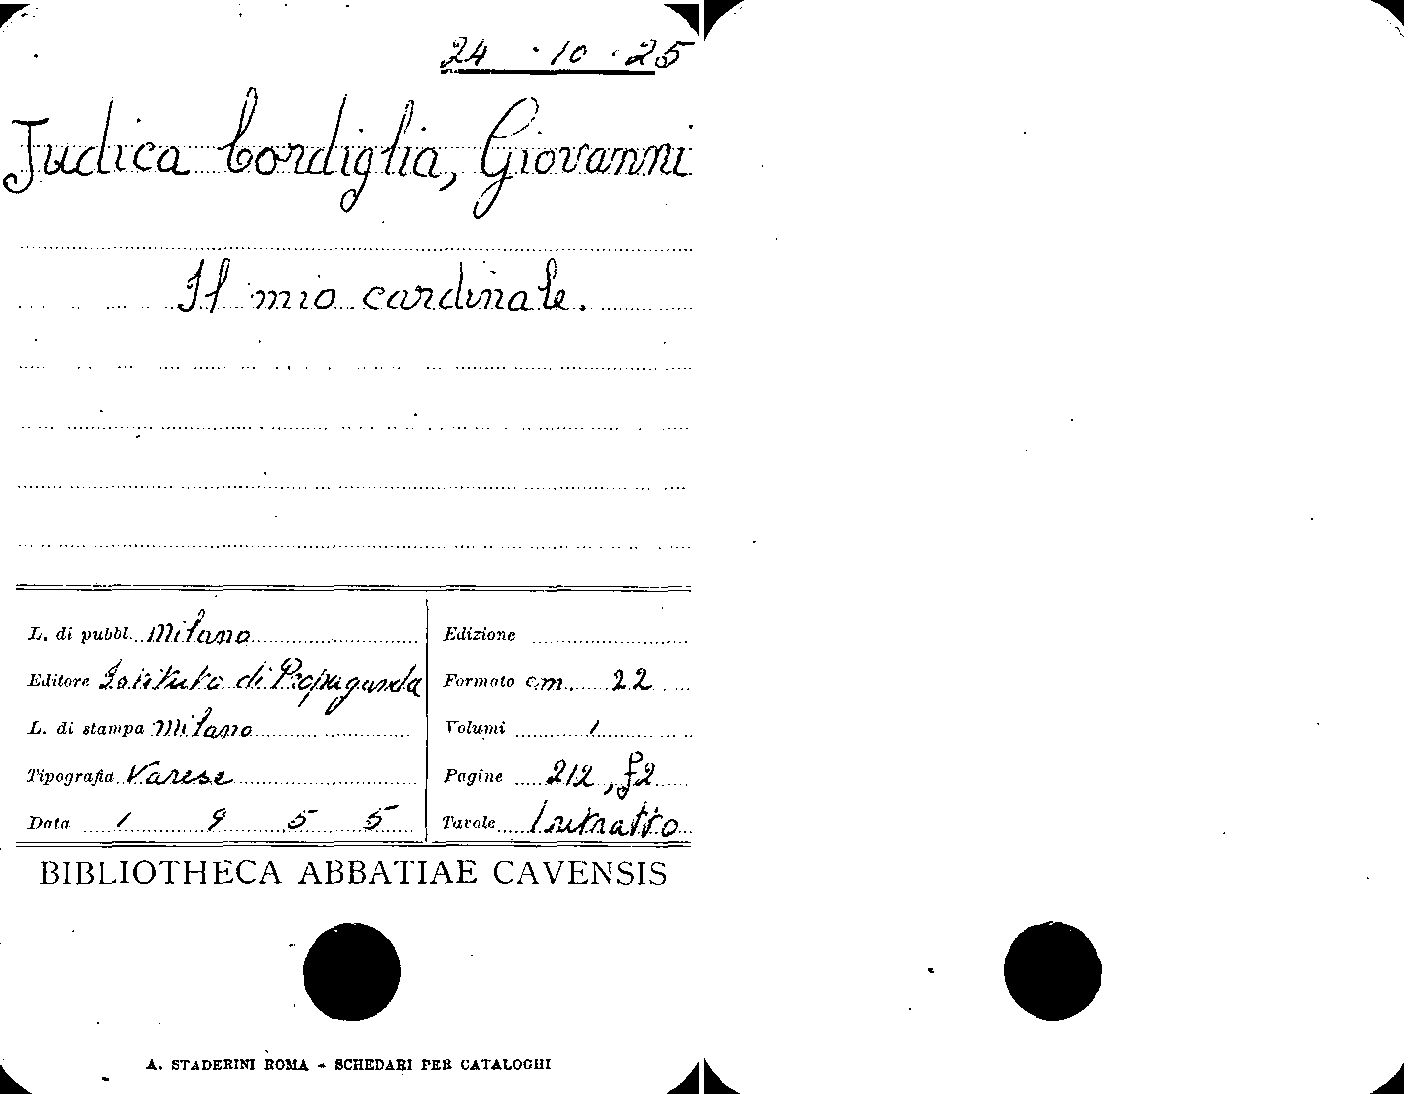 24 . 10 . 25
Judica Cordiglia, Giovanni
Il mio cardinale.
L. di pubbl. Milano
Editore Istituto di Propaganda
L. di stampa Milano
Tipografia Varese
Data 1 9 5 5
Edizione
Formato cm. 22
Volumi 1
Pagine 212, f2
Tavole 1 ritratto
BIBLIOTHECA ABBATIAE CAVENSIS
A. STADERINI ROMA - SCHEDARI PER CATALOGHI